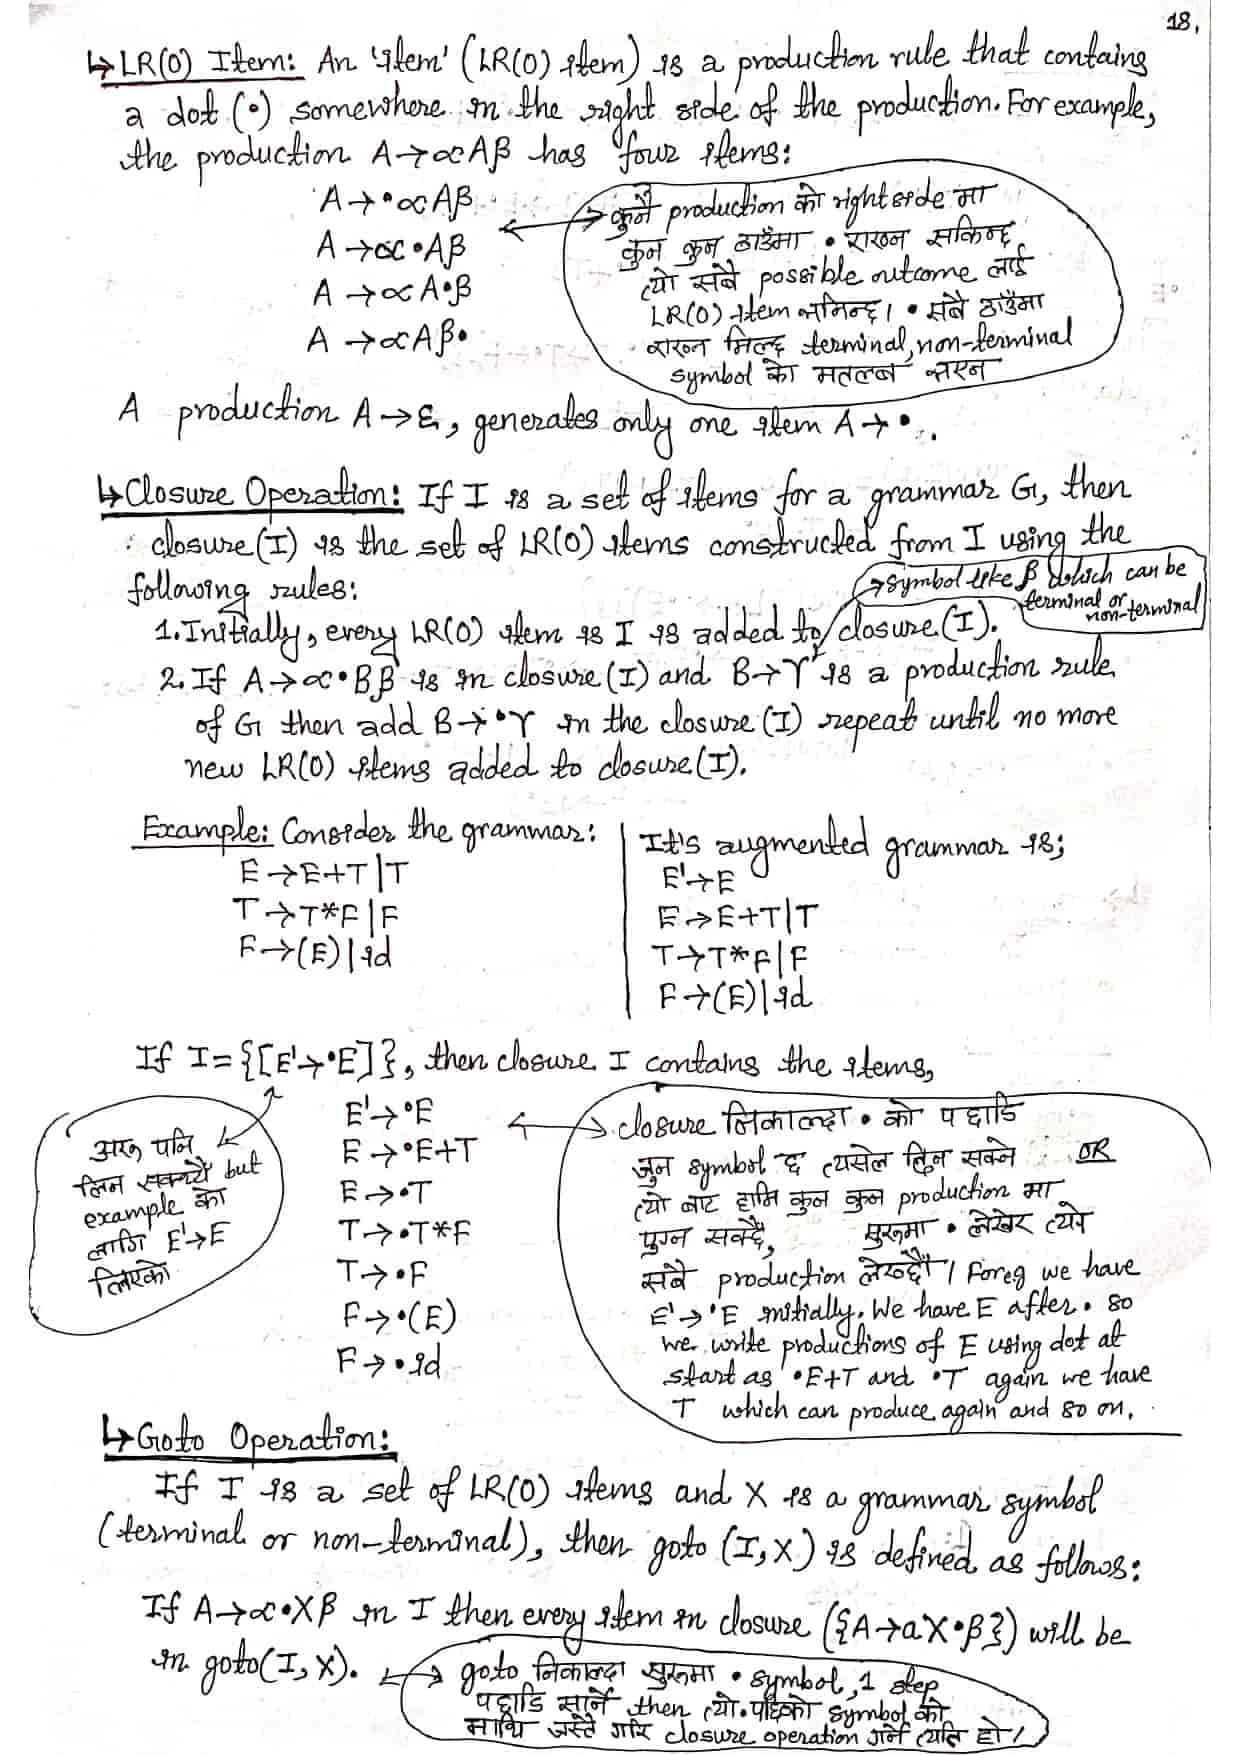 18.
↳ LR(0) Item: An 'item' (LR(0) item) is a production rule that contains
a dot (•) somewhere in the right side of the production. For example,
the production A→αAβ has four items:
A→•αAβ
A→α•Aβ
A→αA•β
A→αAβ•
कुनै production को right side मा
कुन कुन ठाउँमा • राख्न सकिन्छ
त्यो सबै possible outcome लाई
LR(0) item भनिन्छ। • सबै ठाउँमा
राख्न मिल्छ terminal, non-terminal
symbol को मतलब भएन
A production A→ε, generates only one item A→•.
↳ Closure Operation: If I is a set of items for a grammar G, then
closure(I) is the set of LR(0) items constructed from I using the
following rules:
→symbol like β which can be
terminal or
non-terminal
1. Initially, every LR(0) item is I is added to closure(I).
2. If A→α•Bβ is in closure(I) and B→γ is a production rule
of G then add B→•γ in the closure(I) repeat until no more
new LR(0) items added to closure(I).
Example: Consider the grammar:
E→E+T|T
T→T*F|F
F→(E)|id
It's augmented grammar is;
E'→E
E→E+T|T
T→T*F|F
F→(E)|id
If I={[E'→•E]}, then closure I contains the items,
अरू पनि
लिन सक्थ्यौं but
example को
लागि E'→E
लिएको
E'→•E
E→•E+T
E→•T
T→•T*F
T→•F
F→•(E)
F→•id
closure निकाल्दा • को पछाडि
जुन symbol छ त्यसले दिन सक्ने OR
त्यो बाट हामि कुन कुन production मा
पुग्न सक्छौं, सुरूमा • लेखेर त्यो
सबै production लेख्छौं। Foreg we have
E'→•E initially. We have E after • so
we write productions of E using dot at
start as •E+T and •T again we have
T which can produce again and so on.
↳ Goto Operation:
If I is a set of LR(0) items and X is a grammar symbol
(terminal or non-terminal), then goto (I,X) is defined as follows:
If A→α•Xβ in I then every item in closure ({A→aX•β}) will be
in goto(I,X).
goto निकाल्दा सुरूमा • symbol, 1 step
पछाडि सार्ने then त्यो • पछिको symbol को
माथि जस्तै गरि closure operation गर्ने त्यति हो।